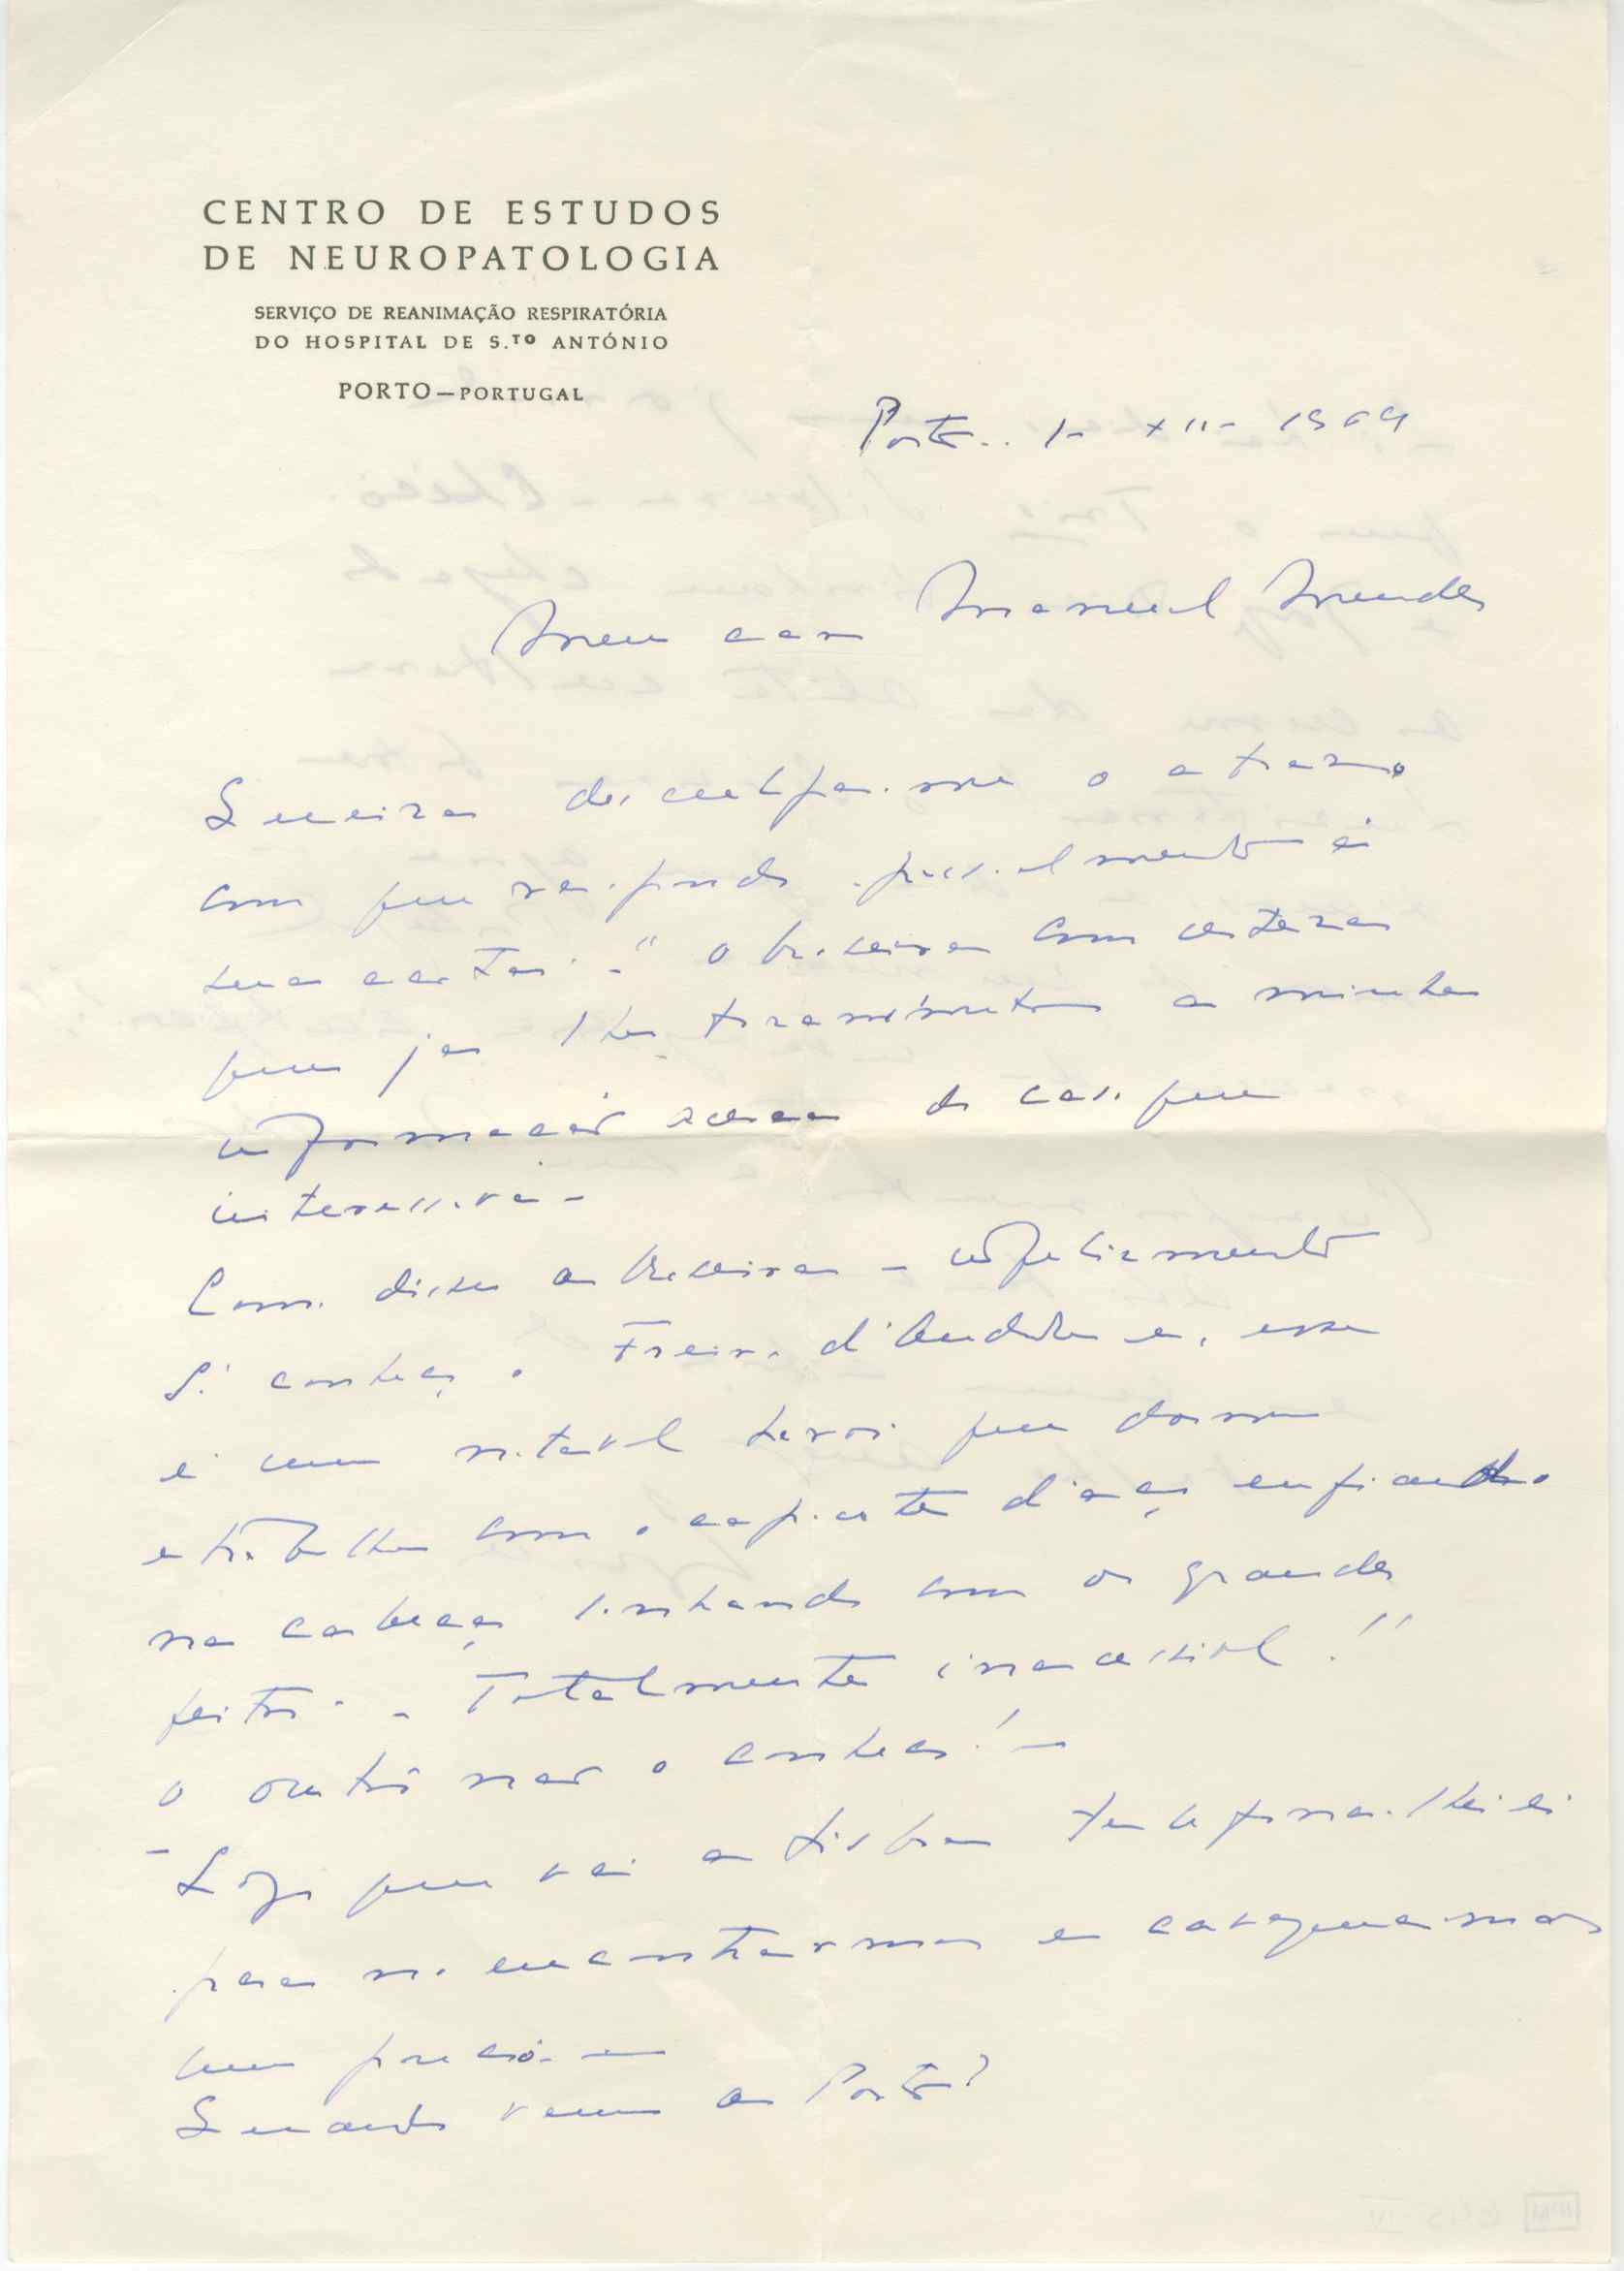 CENTRO DE ESTUDOS
DE NEUROPATOLOGIA
SERVIÇO DE REANIMAÇÃO RESPIRATÓRIA
DO HOSPITAL DE S.TO ANTÓNIO
PORTO—PORTUGAL
Porto.. 1- XII- 1969
Meu caro Manuel Mendes
Queira desculpar-me o atrazo
com que respondo pessoalmente á
sua carta. - O com certeza
que já lhe transmitiu a minha
informação acerca do caso que
interessava -
Como disse a - infelizmente
Só conheço o Freire d'Andrade e, esse
é um notavel heroi que dorme
e trabalha com o capacete d'aço enfiado
na cabeça sonhando com os grandes
feitos. - Totalmente inacessivel!
O outro não o conheço! -
- Logo que vá a Lisboa telefonar-lhei ei
para nos encontrarmos e cavaquearmos
um pouco. -
Quando vem ao Porto?